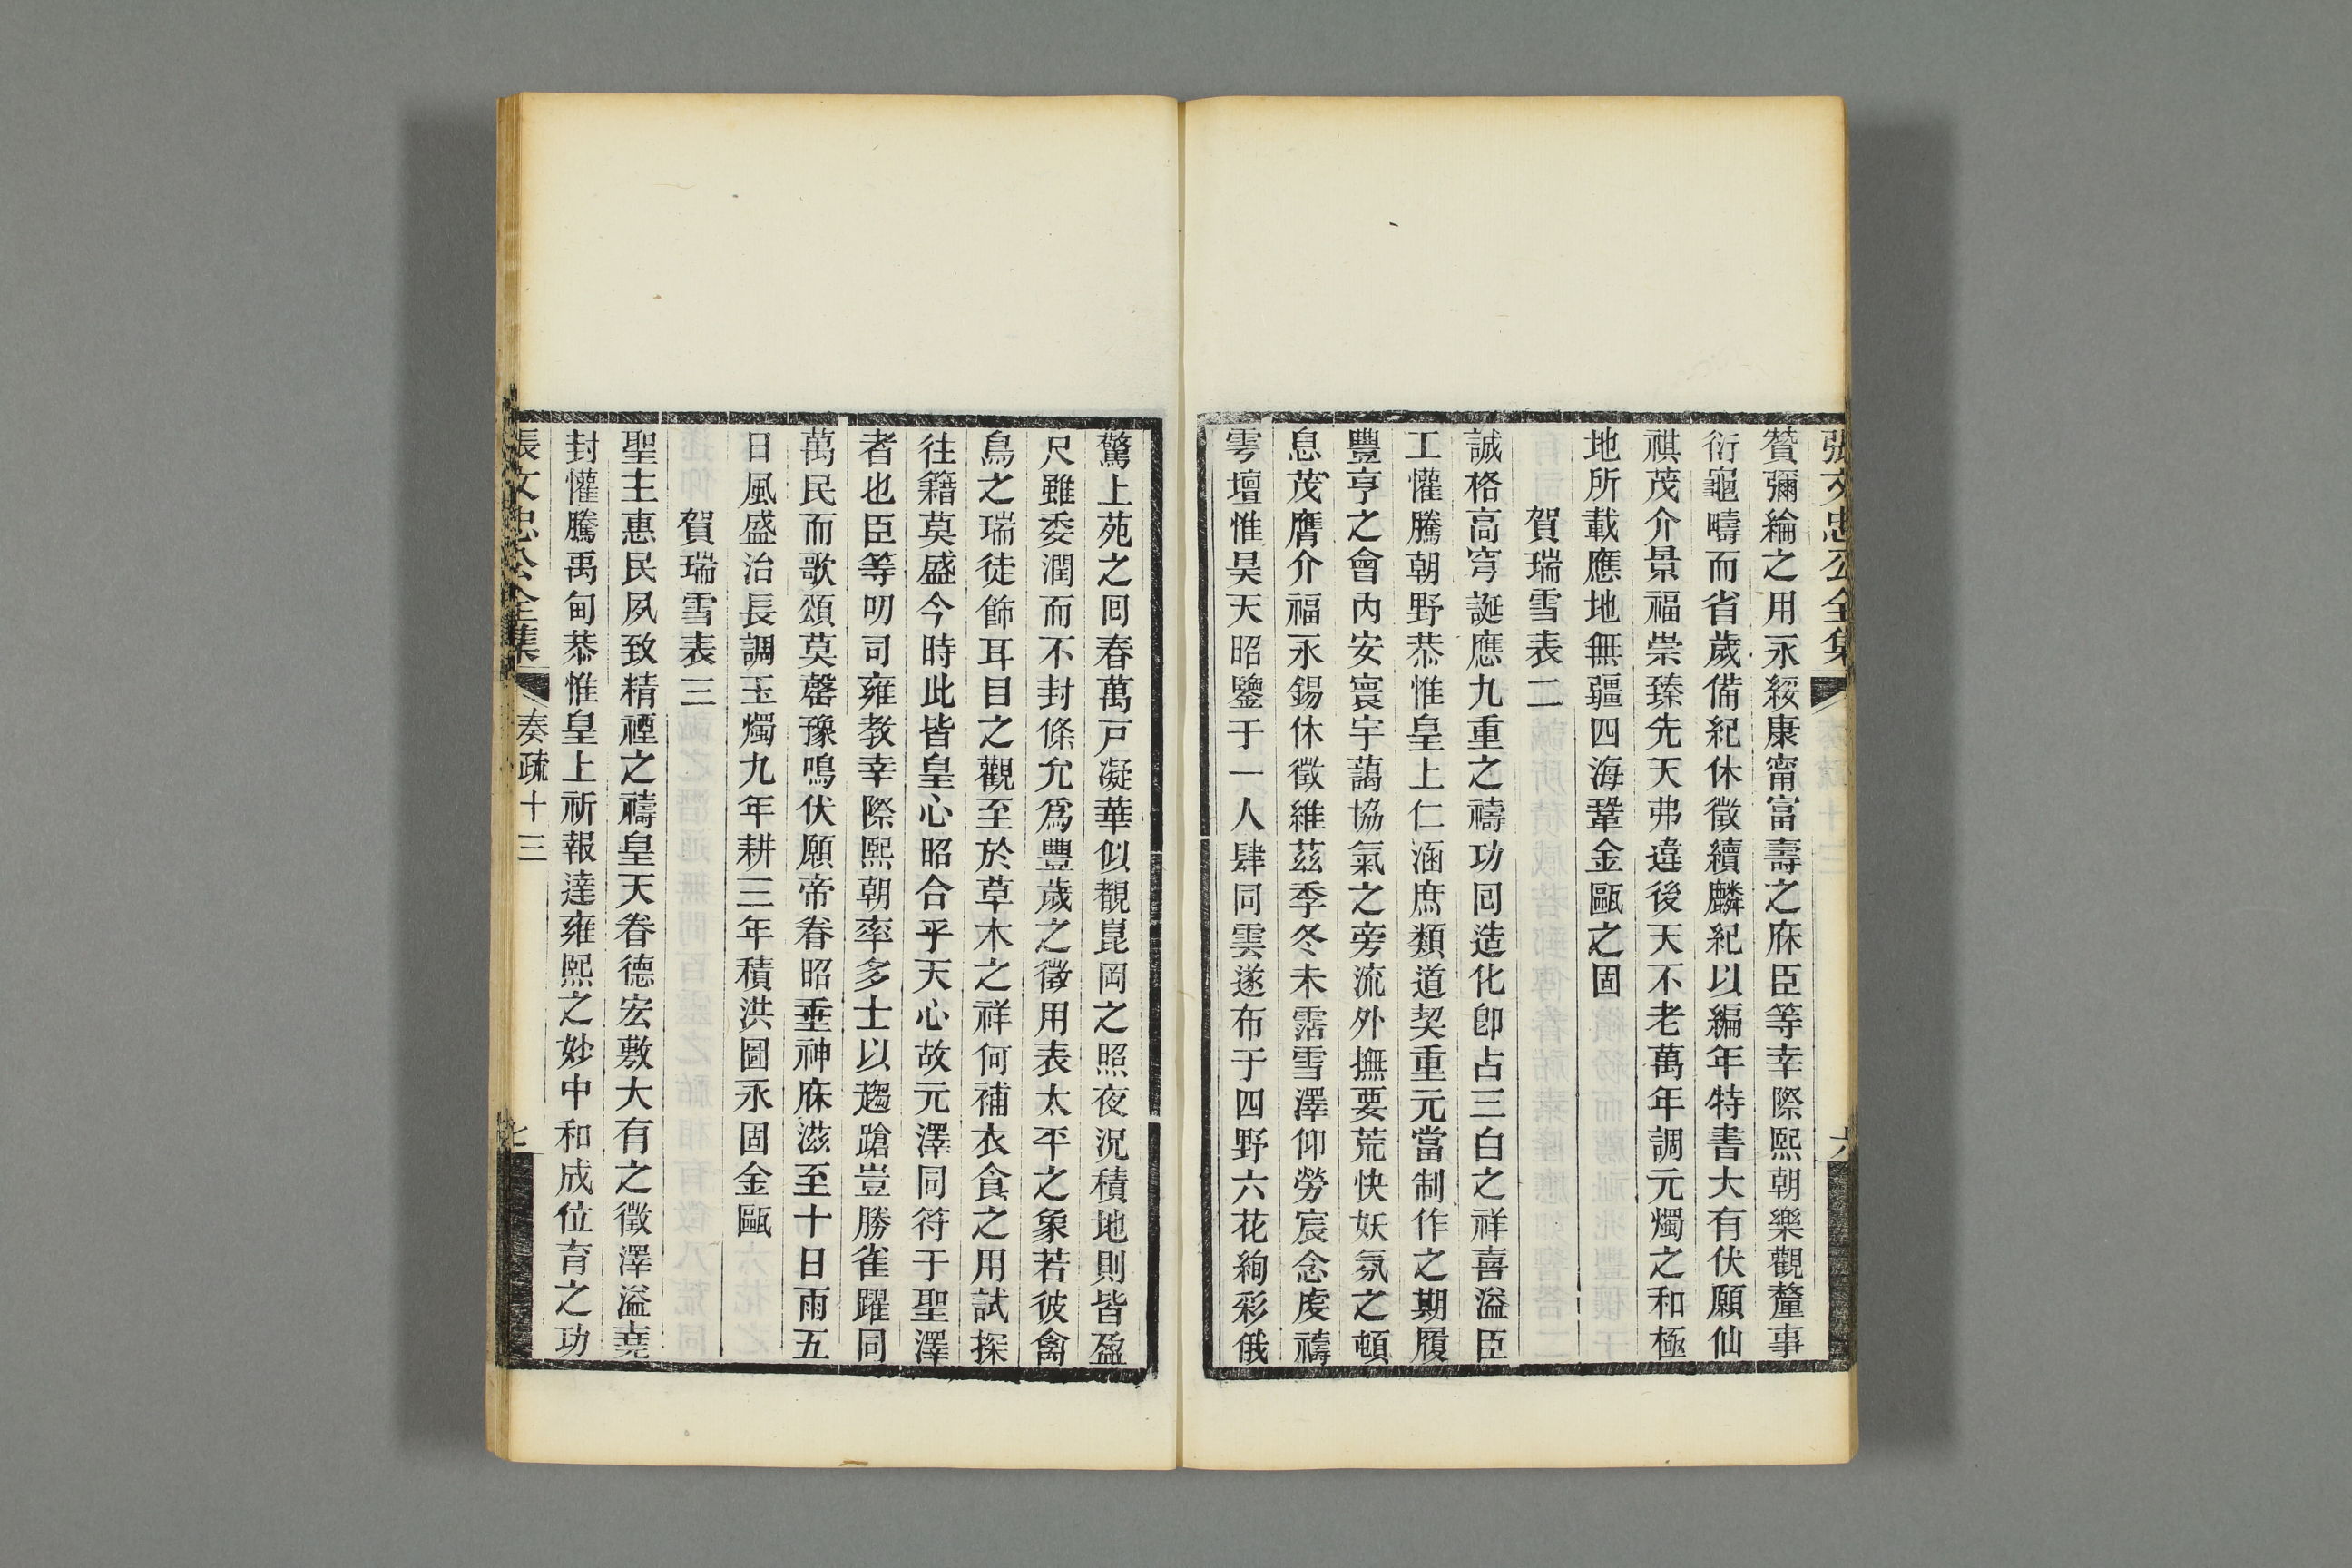 張文忠公全集
六
贊彌綸之用永綏康甯富壽之庥臣等幸際熙朝樂觀釐事
衍龜疇而省歲備紀休徵續麟紀以編年特書大有伏願仙
祺茂介景福崇臻先天弗違後天不老萬年調元燭之和極
地所載應地無疆四海鞏金甌之固
賀瑞雪表二
誠格高穹誕應九重之禱功囘造化卽占三白之祥喜溢臣
工懽騰朝野恭惟皇上仁涵庶類道契重元當制作之期履
豐亨之會內安寰宇藹協氣之旁流外撫要荒快妖氛之頓
息茂膺介福永錫休徵維茲季冬未霑雪澤仰勞宸念虔禱
雩壇惟昊天昭鑒于一人肆同雲遂布于四野六花絢彩俄
驚上苑之囘春萬戸凝華似覩崑岡之照夜況積地則皆盈
尺雖委潤而不封條允爲豐歲之徵用表太平之象若彼禽
鳥之瑞徒飾耳目之觀至於草木之祥何補衣食之用試探
往籍莫盛今時此皆皇心昭合乎天心故元澤同符于聖澤
者也臣等叨司雍教幸際熙朝率多士以趨蹌豈勝雀躍同
萬民而歌頌莫罄豫鳴伏願帝眷昭垂神庥滋至十日雨五
日風盛治長調玉燭九年耕三年積洪圖永固金甌
賀瑞雪表三
聖主惠民夙致精禋之禱皇天眷德宏敷大有之徵澤溢堯
封懽騰禹甸恭惟皇上祈報達雍熙之妙中和成位育之功
張文忠公全集
奏疏十三
七